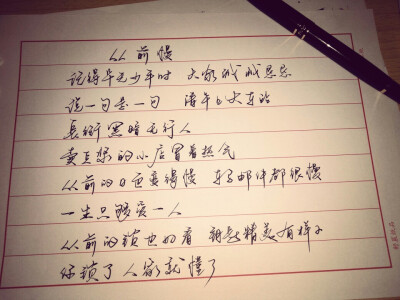 从前慢
记得早先少年时 大家诚诚恳恳
说一句是一句 清早上火车站
长街黑暗无行人
卖豆浆的小店冒着热气
从前的日色变得慢 车马邮件都很慢
一生只够爱一人
从前的锁也好看 钥匙精美有样子
你锁了人家就懂了